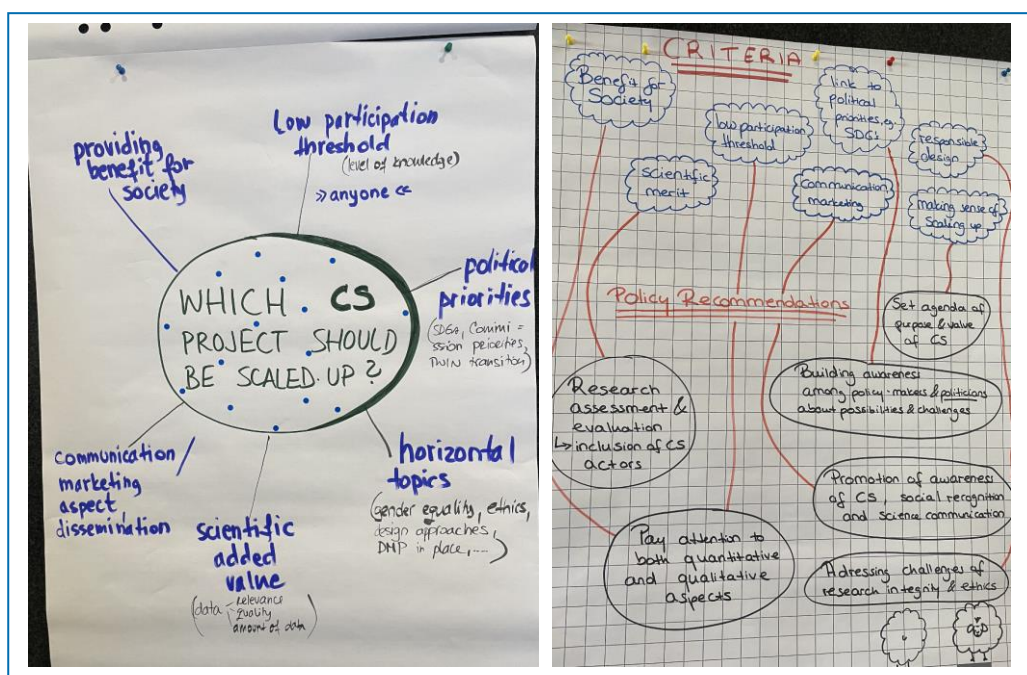 Low participation
threshold
(level of knowledge)
» anyone «
providing
benefit for
society
political
priorities
(SDGs, Commi =
ssion peiorities,
TWIN transiton)
WHICH CS
PROJECT SHOULD
BE SCALED-UP?
communication /
marketing
aspect,
dissemination
scientific
added
value
(data relevance
quality
amount of data)
horizontal
topics
(gender equality, ethics,
design approaches,
DMP in place, .....)
CRITERIA
Benefit for
Society
low participation
threshold
link to
political
priorities, eg.
SDG's
responsible
design
scientific
merit
communication,
marketing
making sense of
scaling up
Policy Recommendations
Set agenda of
purpose & value
of CS
Building awareness
among policy-makers & politicians
about possibilities & challenges
Research
assessment &
evaluation
↳ inclusion of CS
actors
Promotion of awareness
of CS, social recognition
and science communication
Pay attention to
both quantitative
and qualitative
aspects
Adressing challenges of
research integrity & ethics